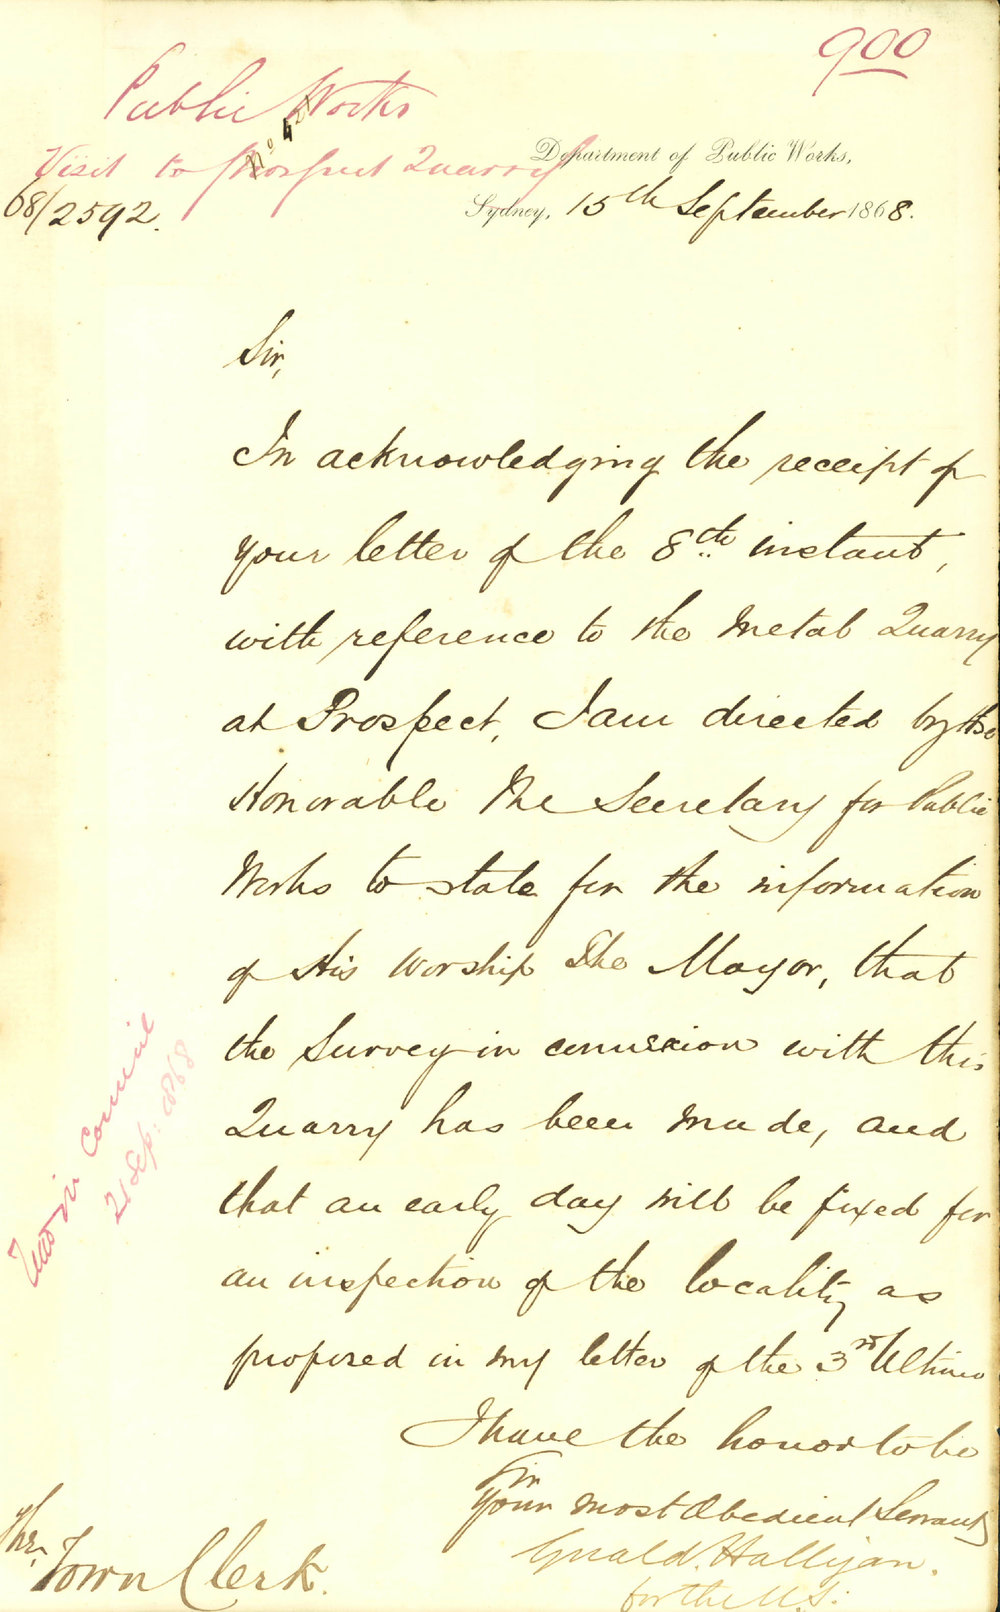 900
Public Works
Visit to Prospect Quarry
68/2592.
Department of Public Works,
Sydney, 15th September 1868.
Sir,
In acknowledging the receipt of
your letter of the 8th instant,
with reference to the Metal Quarry
at Prospect, I am directed by the
Honorable The Secretary for Public
Works to state for the information
of His Worship The Mayor, that
the Survey in connexion with this
Quarry has been made, and
that an early day will be fixed for
an inspection of the locality as
proposed in my letter of the 3rd Ultimo
I have the honor to be
Sir
Your most Obedient Servant
Gerald Halligan.
for the U.S.
The
Town Clerk.
in Council
21 Sep: 1868